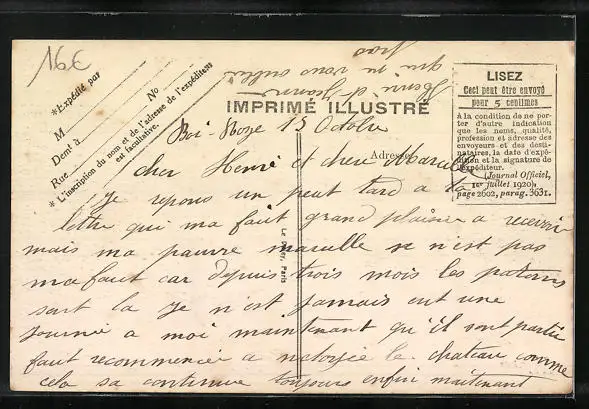 16€
*Expédié par
M
Demt à
No
Rue
* L'inscription du nom et de l'adresse de l'expéditeur
est facultative.
IMPRIMÉ ILLUSTRÉ
Adresse
LISEZ
Ceci peut être envoyé
pour 5 centimes
à la condition de ne por-
ter d'autre indication
que les noms, qualité,
profession et adresse des
envoyeurs et des desti-
nataires, la date d'expé-
dition et la signature de
l'expéditeur.
(Journal Officiel,
1er juillet 1920,
page 2602, parag. 3631.
Le Paris
15 Octobre
cher Henri et chere Marcelle
Je repons un peut tard a ta
lettre qui ma fait grand plaisir a recevoir
mais ma pauvre marcelle se n'est pas
ma faut car depuis trois mois les patrons
sont la je n'est jamais eut une
journee a moi maintenant qu'il sont partie
faut recommencer a le chateau comme
cela sa continue toujours enfin maitenant
qui ne vous oublie
pas